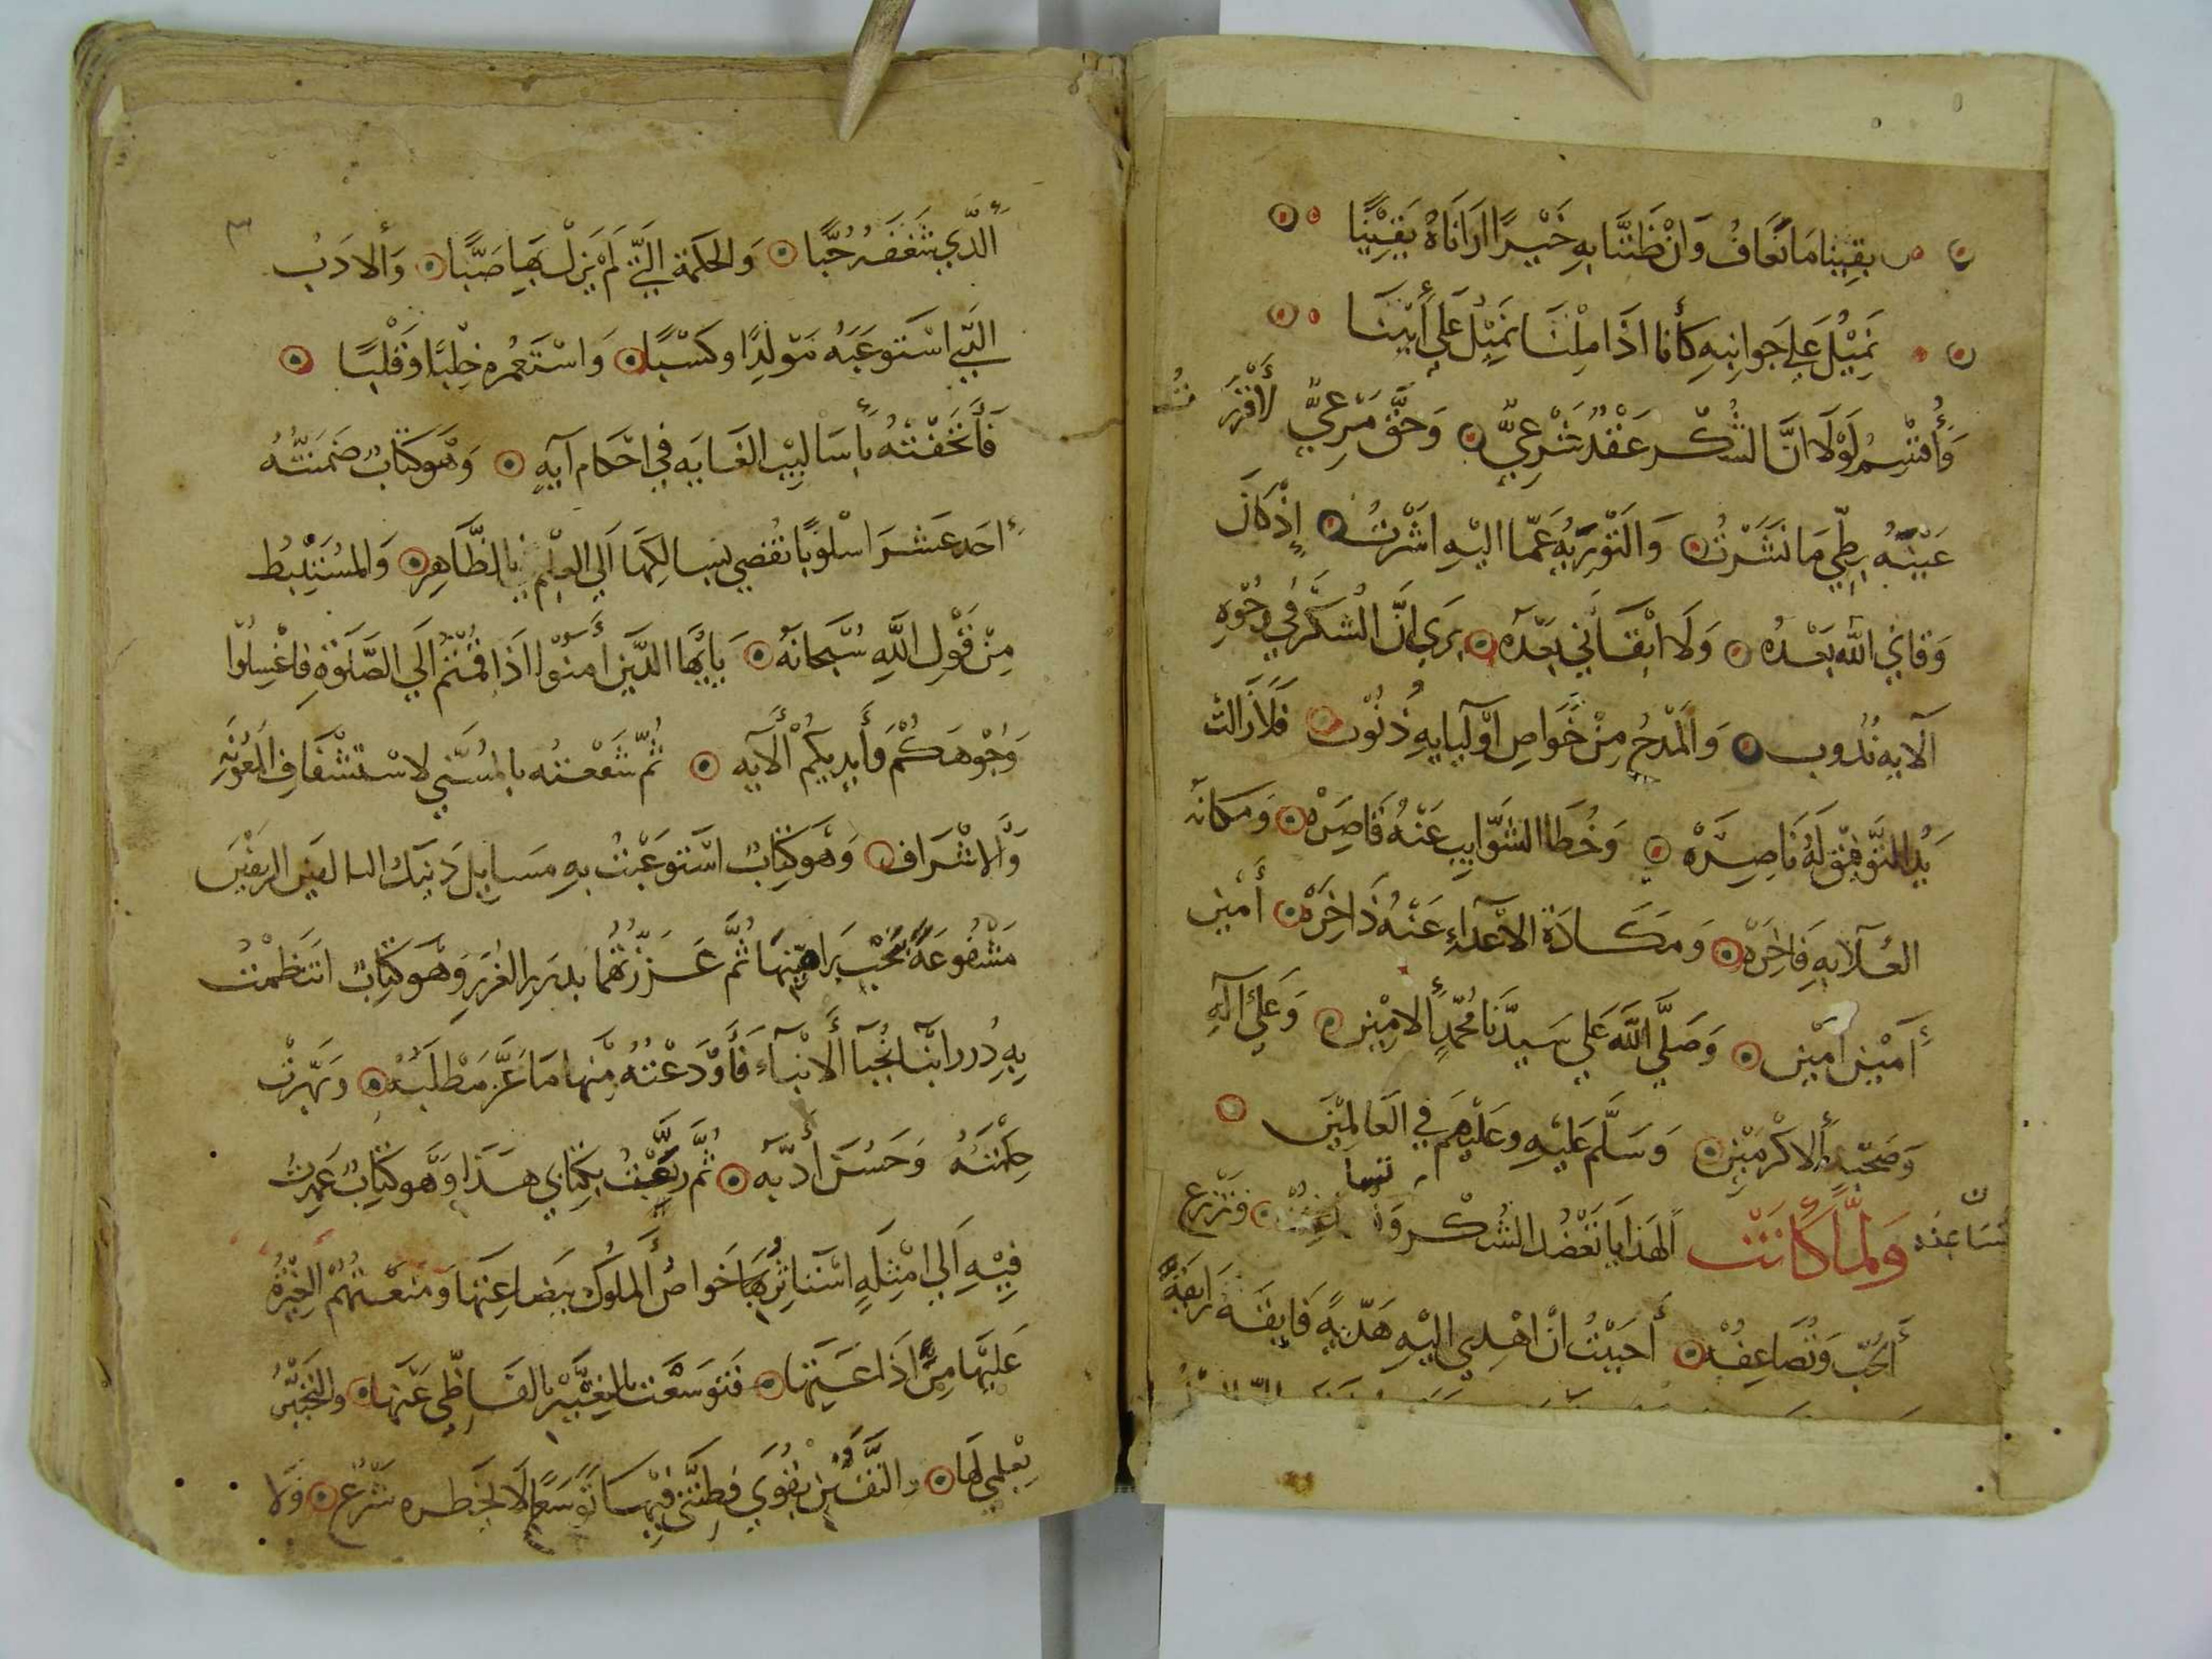 يقينا ما نخاف وَانْ ظَنَنَّا بهِ خَيْرًا ارَانَاهُ يَقِيْنًا
نَمِيْلُ عَلي جَوانِبهِ كَأنا اذَا مِلْنَا نَمِيْلُ عَلي أَبِيْنَا
وَأُقْسِمُ لَوْلَا انَّ الشُكْر عَقْدٌ شَرْعِيٌّ وَحَقٌّ مَرْعِيٌّ لأقْرَرْتُ
عَيْنَهُ بِطَيِّ مَا نَشَرْتُ وَالتَوْرِيَهِ عَمّا اليْهِ اشَرْتُ إذْ كَانَ
وَقانِي الله بَعْدُه وَلَا ابْقَانِي بَعْدَه يَرَي انَّ الشُكْرَ فِي وُجُوْهِ
آلايهِ نُدُوب وَالمَدْحُ مِنْ خَوَاصِ أوْليايهِ ذُنُوْب فَلَا زَالتْ
يَدُ التَّوفيْق لَهُ نَاصِرَهْ وَخُطَا الشَوَّايب عَنْهُ قَاصِرَهْ وَمكانه
العُلآ بهِ فَاخِرَهْ وَمكَادَة الاعْدَاءِ عَنْهُ دَاخِرَهْ أَمين
أَمين امين وَصَلَّي الله عَلي سَيِدِّنَا مُحمَّدٍ الامِيْنِ وَعَلي آلهِ
وَصَحْبِهِ الاكْرَمِيْن وَسَلَّم عَليْهِ وعَليْهِم فِي العَالمِيْنَ
وَلمَّا كَانَتْ الهدَايا تَعْضُد الشُكْر وَتساعفه وَتزْرع
الحُبّ وَتُضَاعِفُه أَحبَبْتُ انْ اهْدِي اليْهِ هَدِيّةً فَايقَةً رَايقَةً
الَّذِي شَغَفَهُ حُبًّا وَالحكمَة الّتي لَمْ يَزلْ بِهَا صَبًّا وَالادَبُ
الّذي اسْتَوعَبَهُ مَوْلِدًا وكَسْبًا وَاسْتَعْمَره خِلْبًا وَقَلْبًا
فَأَتْحَفْتُهُ بأسَاليْبِ الغَايَه فِي احْكَام آيَه وَهُوَ كِتَاب ضَمَنْتُهُ
احَد عَشَرَ اسْلُوبًا تُفضي بسَالِكهَا اَلي العِلْمِ بالظَّاهِر وَالمُسْتَنْبَط
مِنْ قَوْلِ اللهِ سُبْحَانَهُ يَايُّهَا الَّذِيْنَ أمَنُوا اذَا قُمْتُمْ اَلي الصَّلَوٰةِ فاغْسِلُوا
وُجُوْهَكُمْ وَأَيديَكُمْ الآيه ثُمّ شَفَعْتُه بالمُسَنِّي لاسْتِشْفَافِ المَعُوْنَهِ
وَالاشْرَاف وَهُوَ كِتَابٌ اسْتَوعَبْتُ بهِ مسَايل ذَيْنِكَ التاليفين الريقين
مَشْفُوعَةً بُنخَبِ بَرَاهِيْنِهَا ثُمَّ عَزَّزْتُهُمَا بدُرَر الغُرَر وَهُوَ كِتَابٌ انْتَظَمْتُ
بهِ دُررَ انْبَا نُجَبآ الأنْبآءِ فَأَوْدَعْتُهُ مِنْهَا مَا عَزَّ مَطْلَبُه وَبَهَرَتْ
حِكْمَتَهُ وَحَسُنَ أدَبُه ثُمَّ رَبَّعْتُ بكِتَابي هَذا وَهُوَ كِتَابٌ عَمَدْتُ
فِيْهِ اَلي امْثِلَةٍ اسْتَأثَر بهَا خَواصُ الملُوك بِبَضَاعَتهَا وَمَنَعَتْهُمْ الغِيْرَةُ
عَليْهَا مِنْ اذَاعَتِهَا فَتَوَسَّعْتُ بالتعْبِيْر بالفَاظي عَنْهَا والتحْبِيْر
بِعْلمي لهَا والتفَنّن بقوَي فِطنَتي فيْهَا تَوَسُّعًا لَا يَحْظره شَرْع وَلا